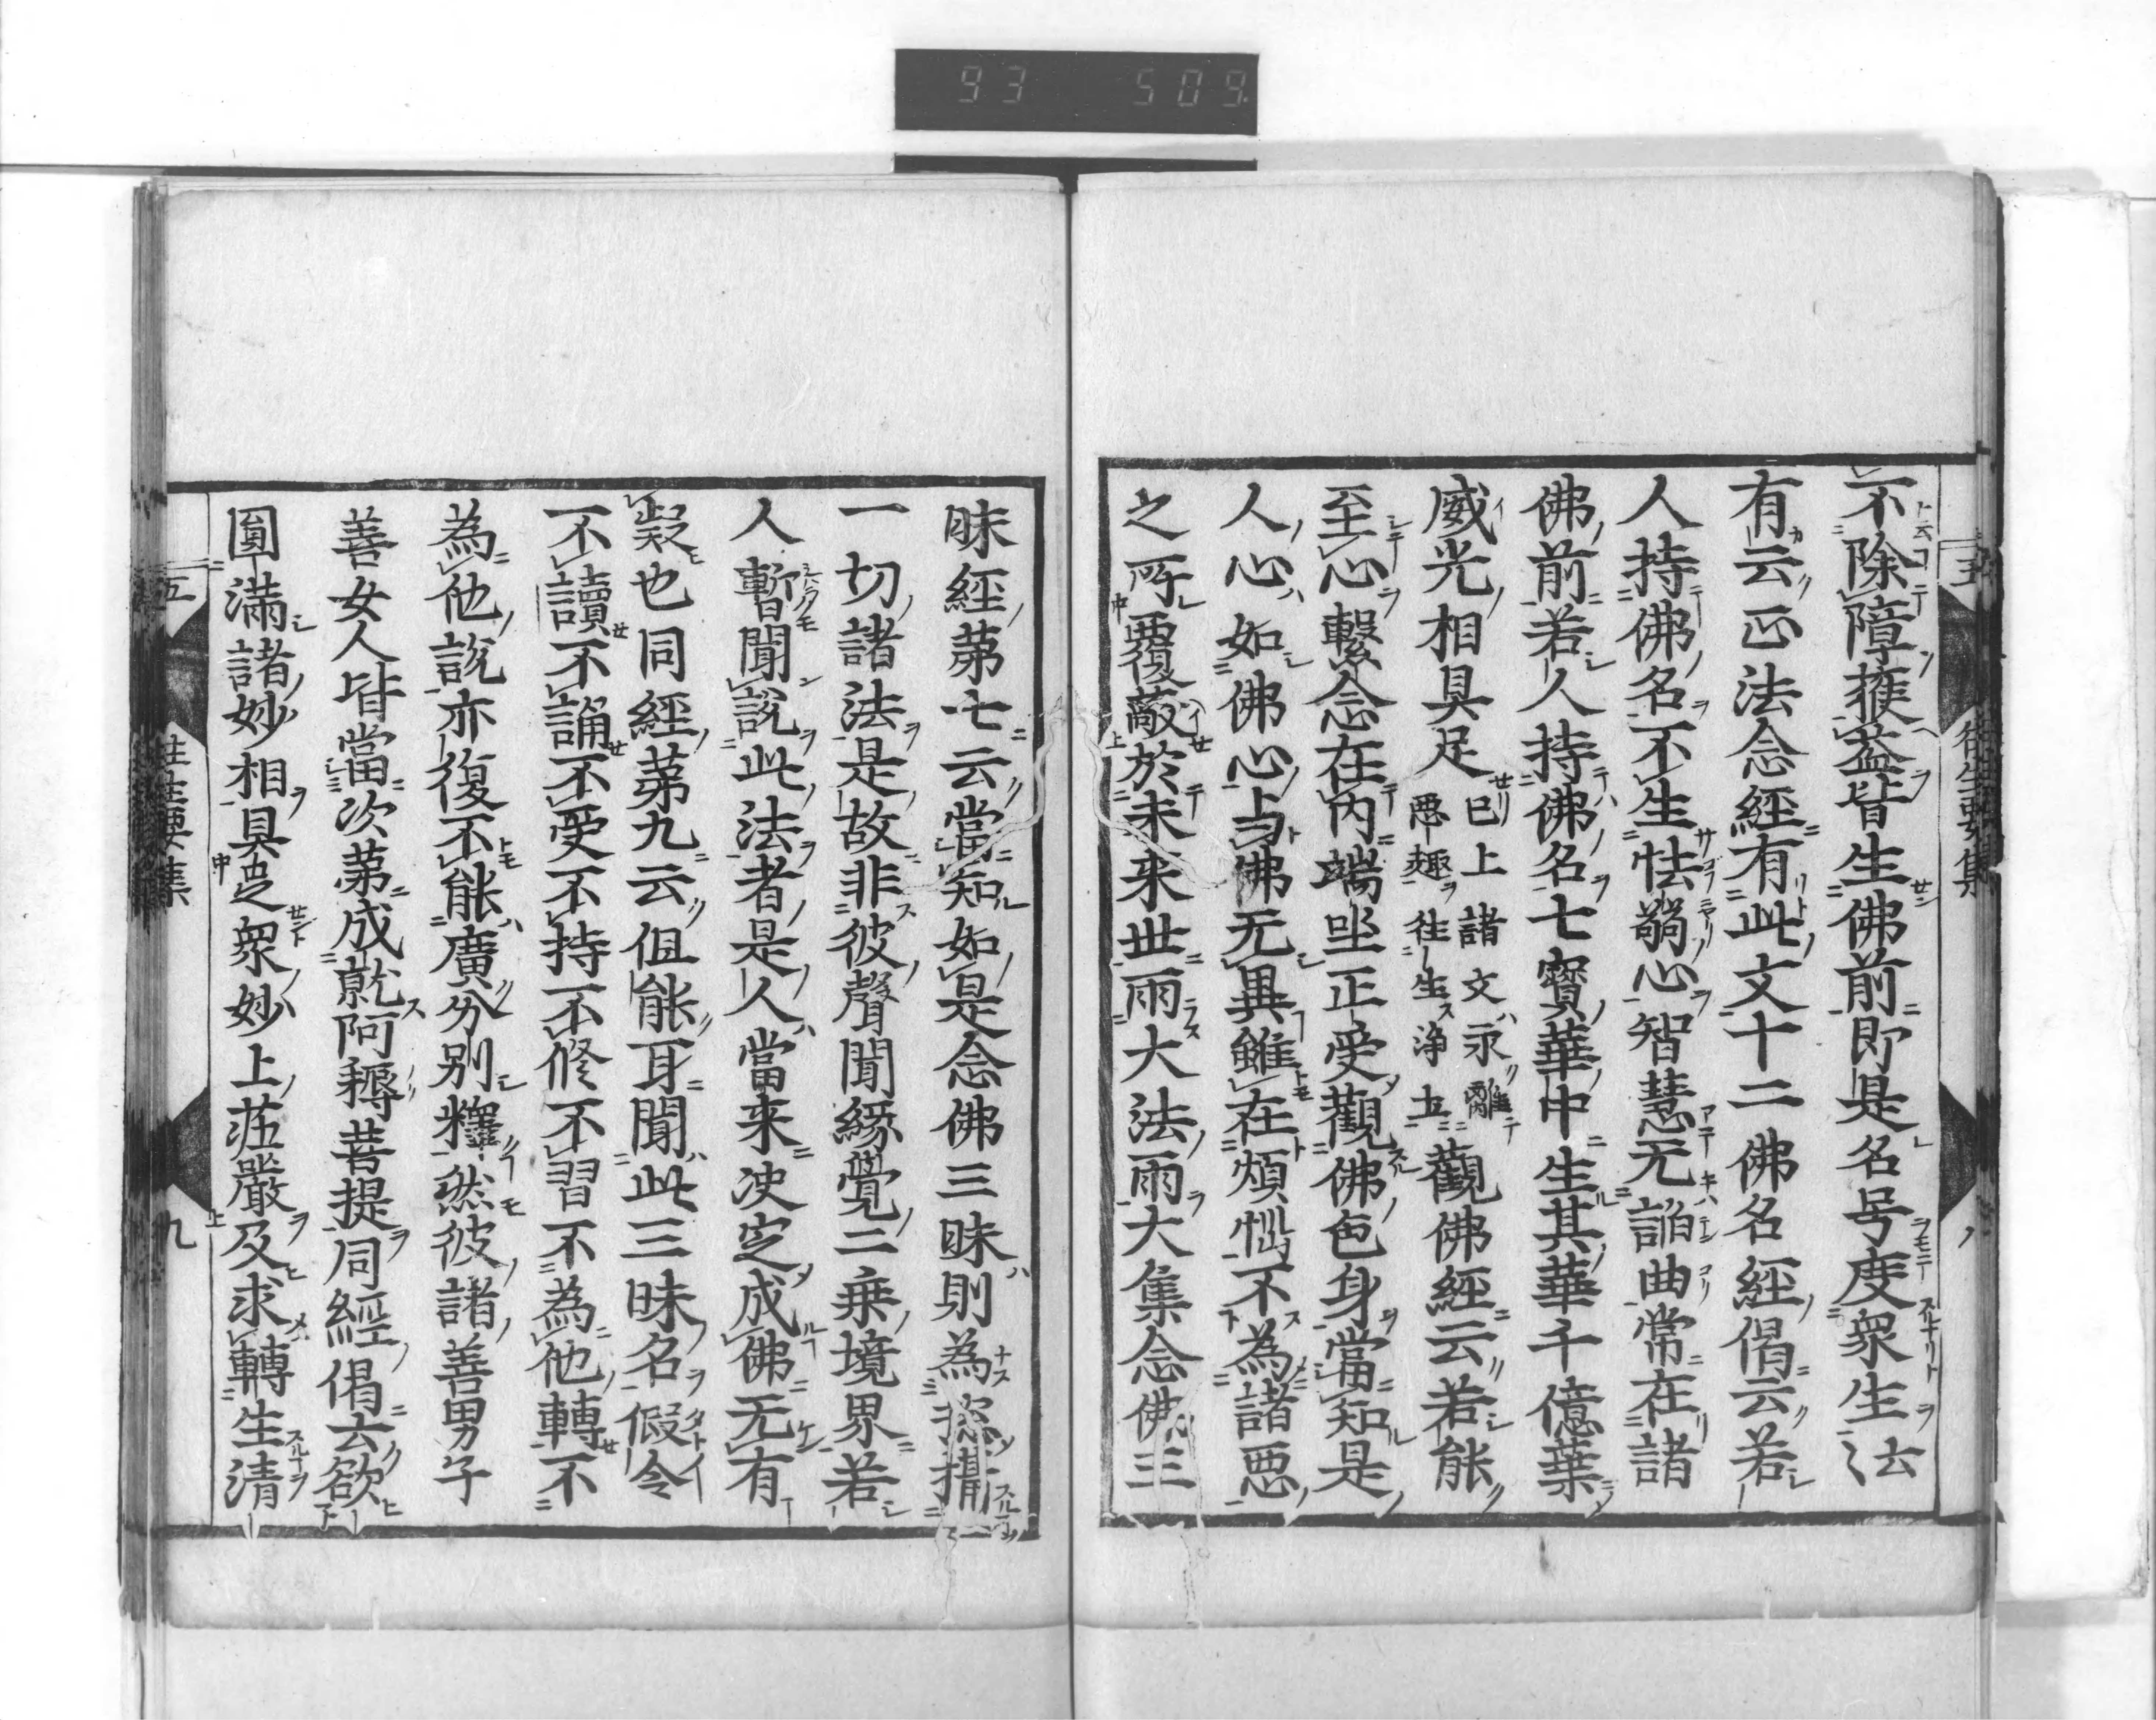 93 509
不除障㨶益皆生佛前即是名号度衆生法
有云正法念經有此文十二佛名經偈云若
人持佛名不生怯弱心智慧无諂曲常在諸
佛前若人持佛名七寳華中生其華千億葉
威光相具足
已上諸文永離
惡趣往生浄土
觀佛經云若能
至心繋念在内端坐正受觀佛色身當知是
人心如佛心与佛无異雖在煩惱不為諸惡
之所覆蔽於未来世雨大法雨大集念佛三
往生要集
八
昧經第七云當知如是念佛三昧則為揔攝
一切諸法是故非彼聲聞縁覺二乗境界若
人暫聞説此法者是人當来决定成佛无有
疑也同經第九云但能耳聞此三昧名假令
不讀不誦不受不持不修不習不為他轉不
為他説亦復不能廣分別釋然彼諸善男子
善女人皆當次第成就阿耨菩提同經偈云欲
圓滿諸妙相具足衆妙上莊嚴及求轉生清
五
往生要集
九